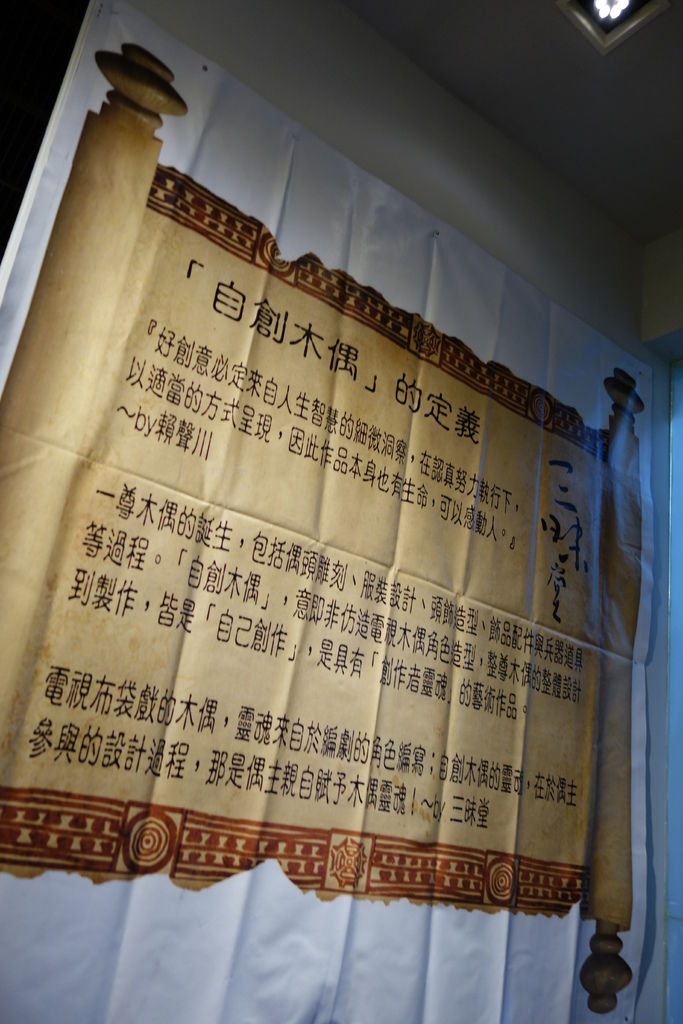 「自創木偶」的定義
『好創意必定來自人生智慧的細微洞察，在認真努力執行下，
以適當的方式呈現，因此作品本身也有生命，可以感動人。』
～by賴聲川
三昧堂
一尊木偶的誕生，包括偶頭雕刻、服裝設計、頭飾造型、飾品配件與兵器道具
等過程。「自創木偶」，意即非仿造電視木偶角色造型，整尊木偶的整體設計
到製作，皆是「自己創作」，是具有「創作者靈魂」的藝術作品。
電視布袋戲的木偶，靈魂來自於編劇的角色編寫；自創木偶的靈魂，在於偶主
參與的設計過程，那是偶主親自賦予木偶靈魂！～by 三昧堂